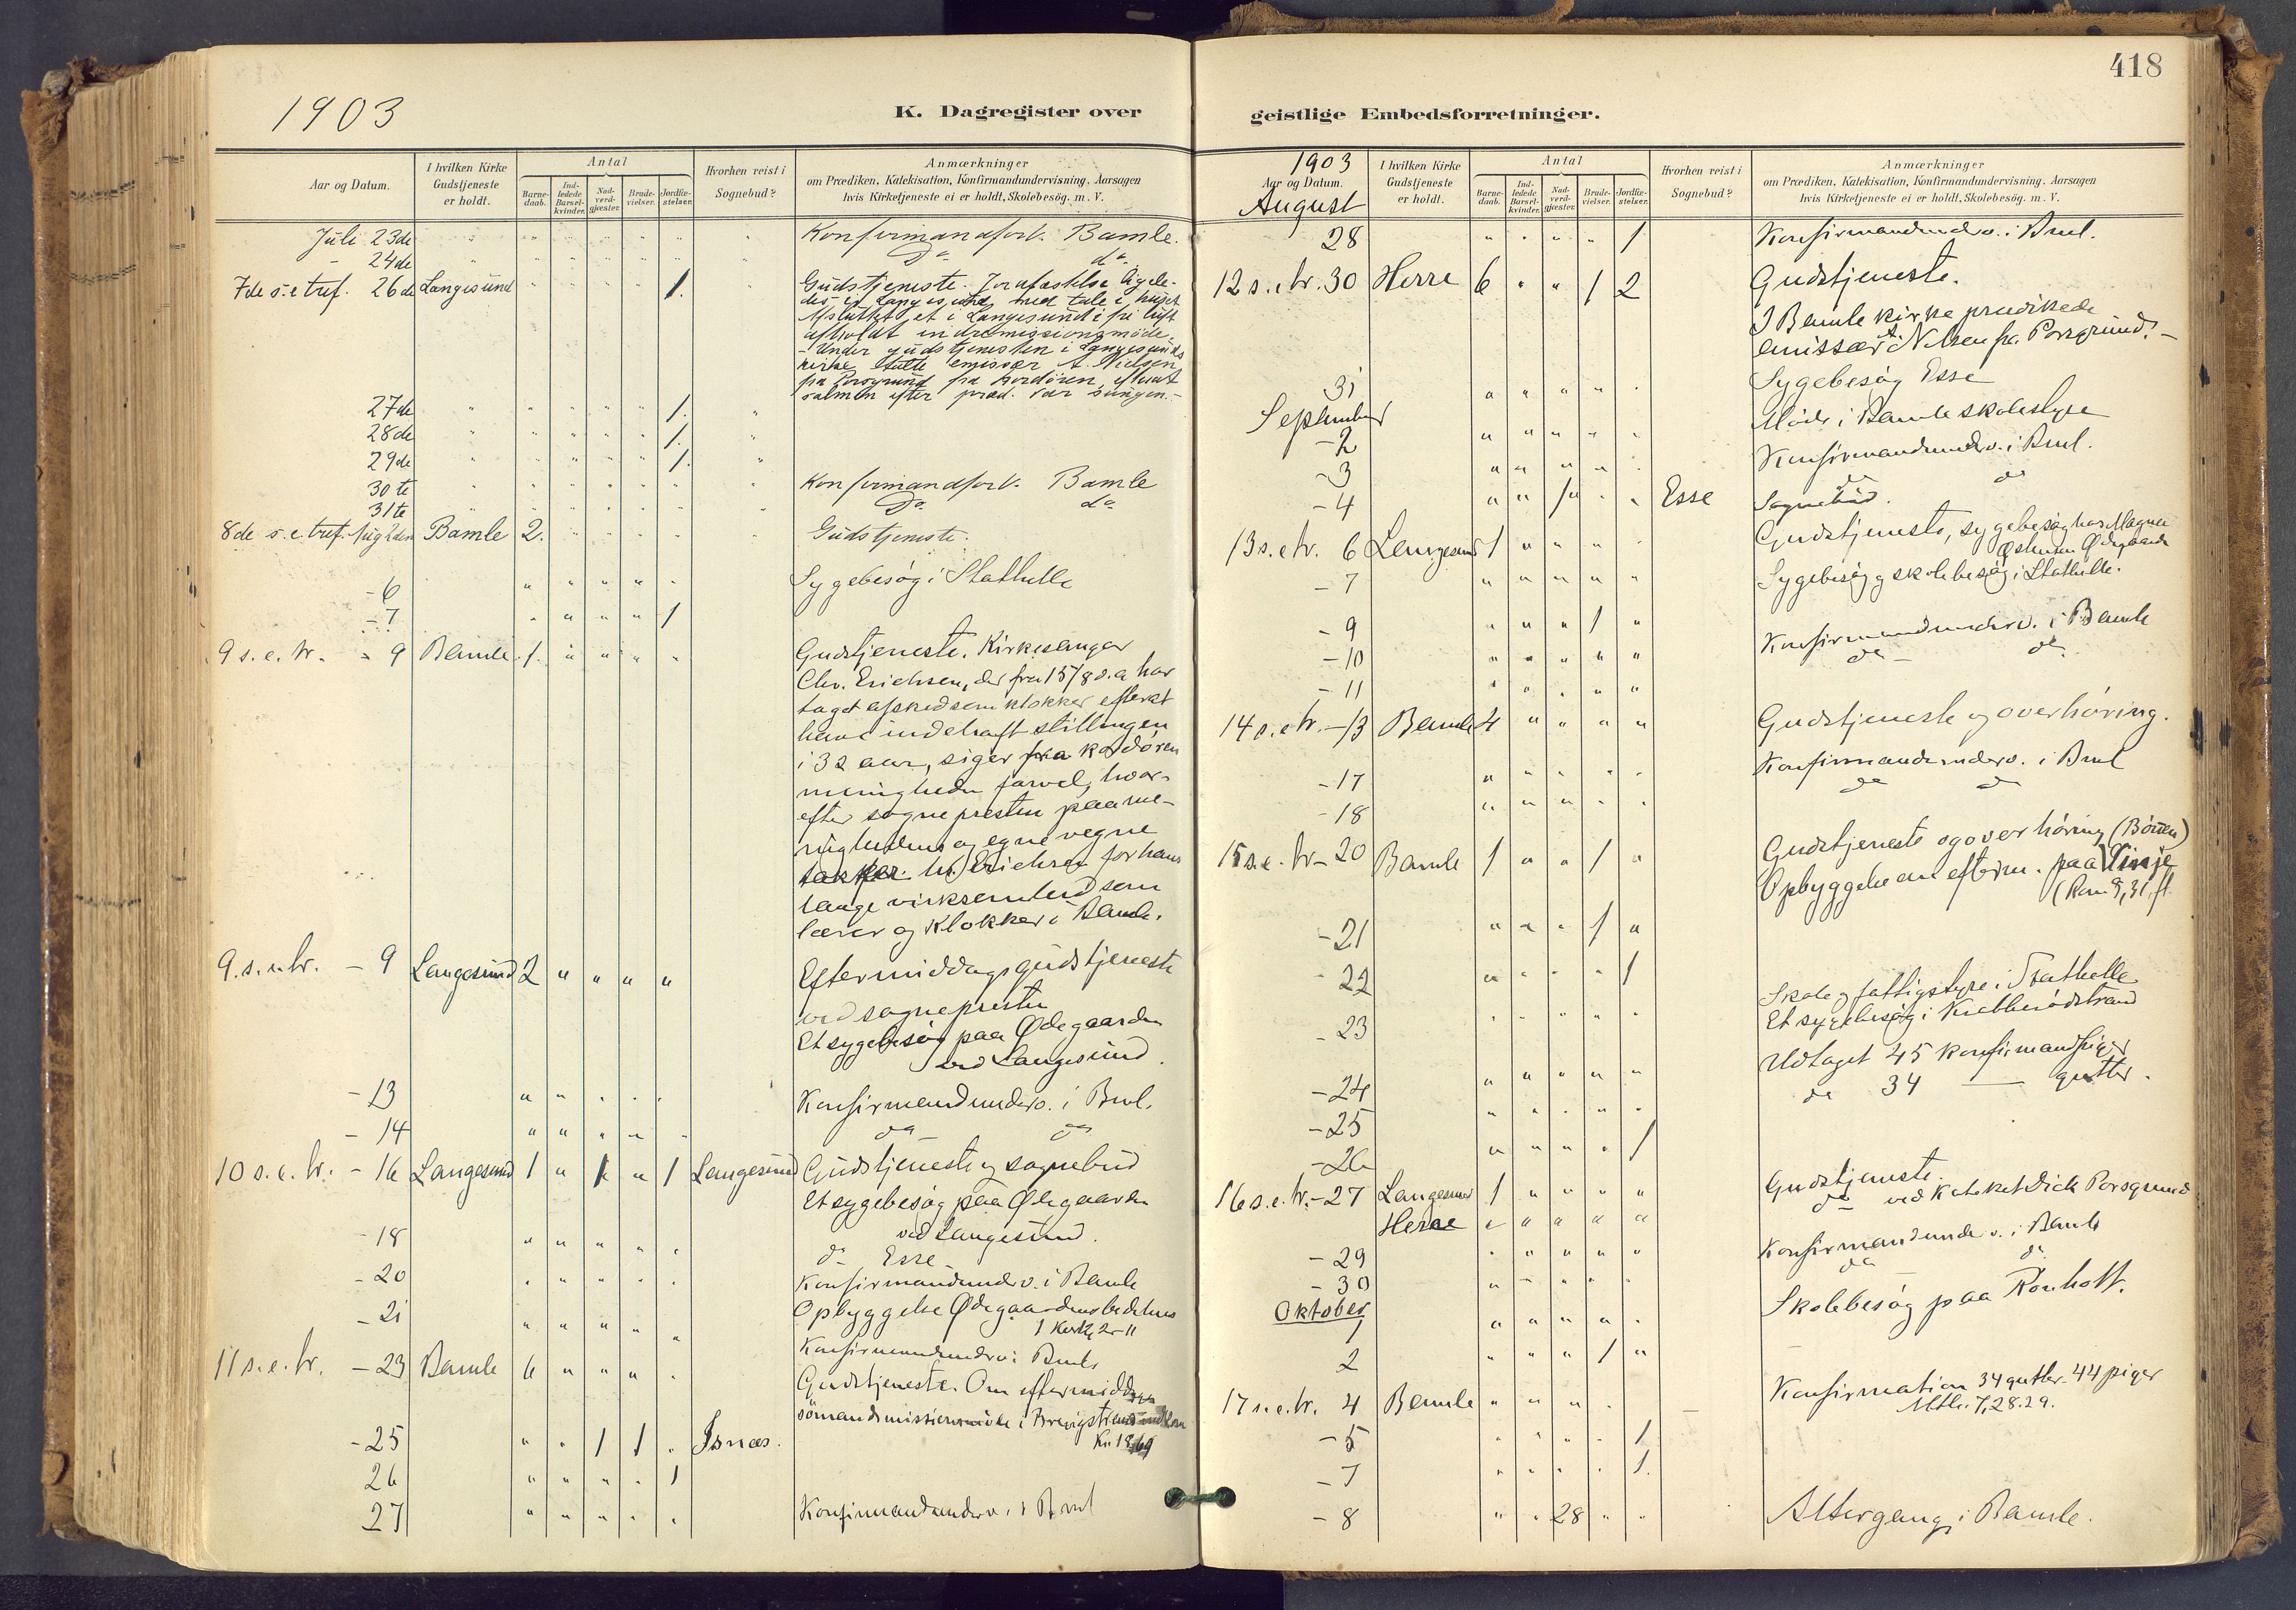 1903
K. Dagregister over
Aar og Datum.
I hvilken Kirke Gudstjeneste er holdt.
Antal
Barnedaab.
Indledede Barselkvinder.
Nadverdgjæster.
Brudevielser.
Jordfæstelser.
Hvorhen reist i Sognebud?
Anmærkninger
om Prædiken, Katekisation, Konfirmandundervisning, Aarsagen
hvis Kirketjeneste ei er holdt, Skolebesög. m. V.
Juli 23de " " " " " " Konfirmandforb. Bamle.
- 24de " " " " " " Do. do.
7de s. e. tref. 26de Langesund " " " " 1. Gudstjeneste. Jordfæstelse ligele-
des i Langesund med tale i huset
Afsluttet et i Langesund i fri luft
afholdt indremissionsmöde.
- Under gudstjenesten i Langesunds
kirke talte emissær A. Nielsen
fra Porsgrund fra kordören, efterat
salmen efter præd. var sungen.-
27de " " " " " 1. "
28de " " " " " 1. "
29de " " " " " 1. "
30te " " " " " " Konfirmandforb. Bamle
31te " " " " " " Do. do.
8de s. e. tref. Aug 2den Bamle 2. " " " " " Gudstjeneste.
- 6 " " " " " Sygebesög i Stathelle
- 7 " " " " 1
9 s. e. tr. - 9 Bamle 1. " " " " Gudstjeneste. Kirkesanger
Chr. Erichsen, der fra 15/8 d. a har
taget afsked som klokker efterat
have indehaft stillingen
i 32 aar, siger fra kordören
menigheden farvel, hvor-
efter sognepresten paa me-
nighedens og egne vegne
takker hr. Erichsen for hans
lange virksomhed som
lærer og klokker i Bamle.
9. s. e. tr. - 9 Langesund 2 " " " " Eftermiddagsgudstjeneste
ved sognepresten
Et sygebesög paa Ødegaarden
ved Langesund.
- 13 " " " " " Konfirmandunderv. i Bml.
- 14 " " " " " do do
10 s. e. tr. - 16 Langesund 1 " 1 " 1 Langesund Gudstjeneste og sognebud
Et sygebesög paa Ødegaarden
ved Langesund.
- 18 " " " " " do Esse
- 20 " " " " " Konfirmandunderv. i Bamle
- 21 " " " " " Opbyggelse Ødegaardens bedehus
Konfirmandunderv. i Bamle
11 s. e. tr. - 23 Bamle 6 " " " " Gudstjeneste. Om eftermiddagen
sömandsmissionsmöde i Brevigstrand
- 25 " " 1 1 " Isnæs.
26 " " " " 1
27 " " " " " Konfirmandunderv. i Bml
418
geistlige Embedsforretninger.
1903
Aar og Datum.
August
I hvilken Kirke Gudstjeneste er holdt.
Antal
Barnedaab.
Indledede Barselkvinder.
Nadverdgjæster.
Brudevielser.
Jordfæstelser.
Hvorhen reist i Sognebud?
Anmærkninger
om Prædiken, Katekisation, Konfirmandundervisning, Aarsagen
hvis Kirketjeneste ei er holdt, Skolebesög. m. V.
28 " " " " 1 Konfirmandunderv. i Bml.
12 s. e. tr. 30 Herre 6 " " 1 2 Gudstjeneste.
I Bamle kirke prædikede
emissær A. Nilsen fra Porsgrund.-
31 " " " " " Sygebesög Esse
September Möde i Bamle skolestyre
- 2 " " " " " Konfirmandunderv. i Bml.
- 3 " " " " " do do
- 4 " " 1 " " Esse Sognebud.
13 s. e. tr. 6 Langesund 1 " " " " Gudstjeneste, sygebesög hos Magna
Østensen Ødegaarden
- 7 " " " " " Sygebesög og skolebesög i Stathelle.
- 9 " " " 1 "
- 10 " " " " " Konfirmandunderv. i Bamle
- 11 " " " " " do - do
14 s. e. tr. - 13 Bamle 4 " " " " Gudstjeneste og overhöring.
- 17 " " " " " Konfirmandunderv. i Bml
- 18 " " " " " do do
15 s. e. tr. - 20 Bamle 1 " " 1 " Gudstjeneste og overhöring (Bönen)
Opbyggelse om efterm. paa Vinje
(Rom 9,31 fl.
- 21 " " " 1 "
- 22 " " " " 1
- 23 " " " " " Skole og fattigstyre i Stathelle
Et sygebesög i Krabberödstrand
- 24 " " " " " Udtaget 45 konfirmandpiger
- 25 " " " " " do 34 — gutter.
- 26 " " " " 1
16 s. e. tr. - 27 Langesund 1 " " " " Gudstjeneste.
Herre " " " " " do ved kateket Dick Porsgrund
- 29 " " " " " Konfirmandunderv. i Bamle
- 30 " " " " " do do
Oktober
1 " " " " " Skolebesög paa Rönholt.
2 " " " 1 "
17 s. e. tr. 4 Bamle " " " " Konfirmation 34 gutter - 44 piger
Mtth. 7,28.29.
- 5 " " " " 1
- 7 " " " " 1.
- 8 " " 28 " " Altergang i Bamle.